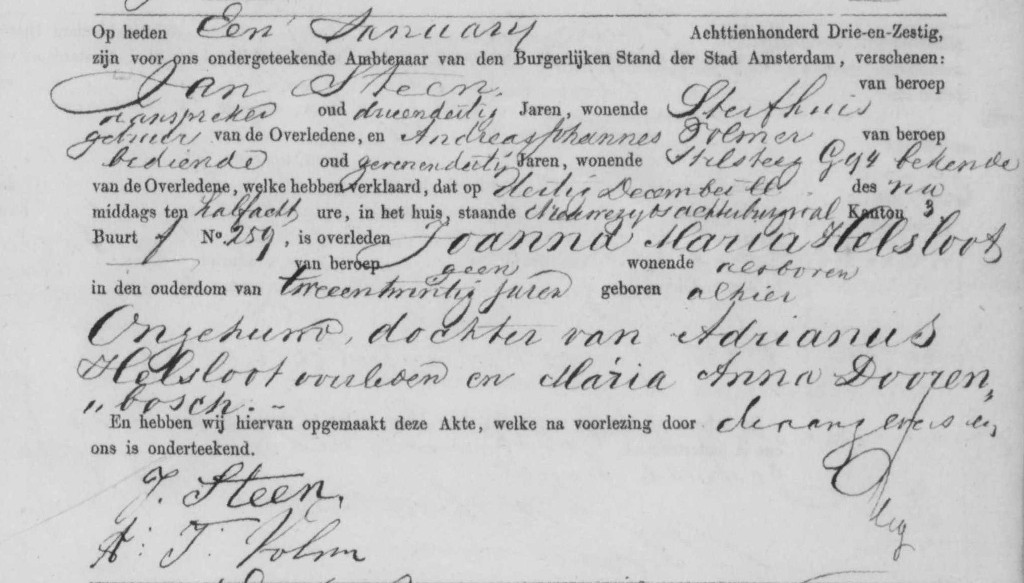 Op heden Een January Achttienhonderd Drie-en-Zestig,
zijn voor ons ondergeteekende Ambtenaar van den Burgerlijken Stand der Stad Amsterdam, verschenen:
Jan Steen van beroep
aanspreker oud drieendertig Jaren, wonende Sterfhuis
gebuur van de Overledene, en Andreas Johannes Volmer van beroep
bediende oud Jaren, wonende Stilsteeg G 94 bekende
van de Overledene, welke hebben verklaard, dat op dertig December ll. des na
middags ten half acht ure, in het huis, staande achterburgwal Kanton 3
Buurt No. 259, is overleden Joanna Maria Helsloot
van beroep geen wonende alsboven
in den ouderdom van tweeentwintig jaren geboren alhier
Ongehuwd, dochter van Adrianus
Helsloot overleden en Maria Anna Dooren„
„bosch. -
En hebben wij hiervan opgemaakt deze Akte, welke na voorlezing door de aangevers en
ons is onderteekend.
J. Steen.
A: J. Volm